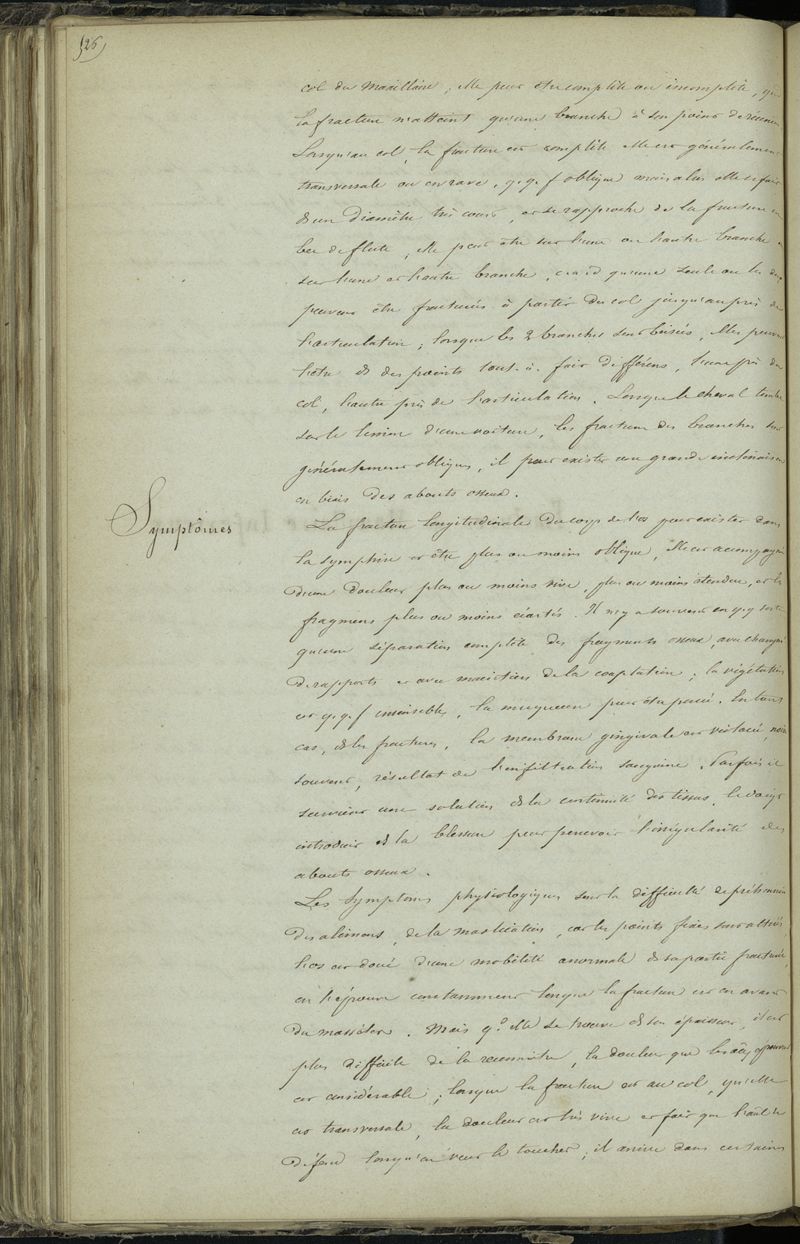 126)
col du maxillaire, elle peut être complète ou incomplète, que
la fracture n'atteint qu'une branche à son point de réunion
Lorsqu'au col, la fracture est complète elle est généralement
transversale ou en rave, q.q.f oblique mais alors elle se fait
ds un Diamètre très court, et se rapproche de la fracture en
bec de flute, elle peut être sur l'une ou l'autre branche
sur l'une et l'autre branche, c.a.d qu'une seule ou les deux
peuvent être fracturées à partir du col jusqu'auprès de
l'articulation, lorsque les 2 branches sont brisées, elles peuvent
l'être ds des points tout-à-fait différens, l'une près du
col, l'autre près de l'articulation. Lorsque le cheval tombe
sur le timon d'une voiture, les fractures des branches sont
généralement obliques, il peut exister une grande inclinaison
en biais des abouts osseux.
Symptômes
La fracture longitudinale du corps de l'os peut exister dans
la symphise et être plus ou moins oblique, elle est accompagnée
d'une douleur plus ou moins vive, plus ou moins étendue, et les
fragmens plus ou moins écartés. Il n'y a souvent en q.q sorte
qu'une séparation complète des fragments osseux, avec changement
de rapports et avec de la coaptation; la végétation
est q.q.f insensible, la muqueuse peut être percée. En tous
cas, ds les fractures, la membrane gingivale est violacée, noire
souvent, résultat de l'infiltration sanguine. Parfois il
survient une solution ds la continuité des tissus, le doigt
introduit ds la blessure peut percevoir l'irrégularité des
abouts osseux.
Les symptomes physiologiques sont la difficulté de préhension
des alimens, de la mastication, car les points fixes sont altérés,
l'os est doué d'une mobilité anormale ds sa partie fracturée,
on l'éprouve constamment lorsque la fracture est en avant
du masséter. Mais qd elle se trouve ds son épaisseur, il est
plus difficile de la reconnaître, la douleur que
est considérable; lorsque la fracture est au col, qu'elle
est transversale, la douleur est très vive et fait que l'anal se
défend lorsqu'on veut le toucher; il arrive dans certains